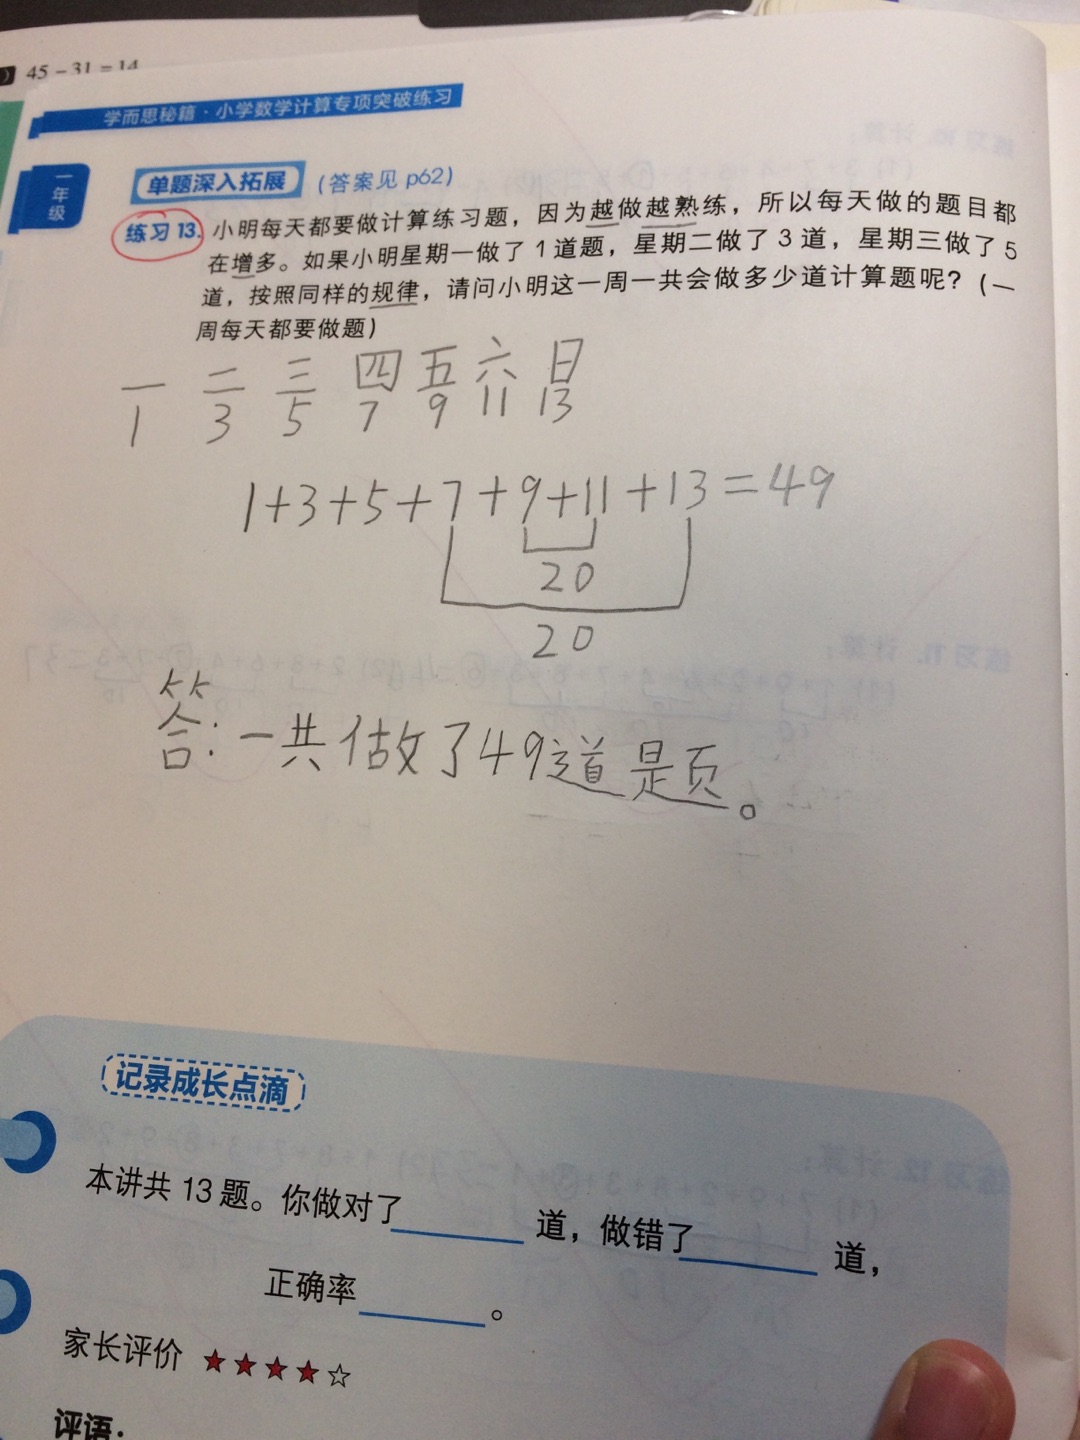 45-31=14
学而思秘籍·小学数学计算专项突破练习
一年级
单题深入拓展 (答案见 p62)
练习 13. 小明每天都要做计算练习题，因为越做越熟练，所以每天做的题目都
在增多。如果小明星期一做了 1 道题，星期二做了 3 道，星期三做了 5
道，按照同样的规律，请问小明这一周一共会做多少道计算题呢？(一
周每天都要做题)
一 二 三 四 五 六 日
1 3 5 7 9 11 13
1+3+5+7+9+11+13=49
20
20
答：一共做了49道题。
记录成长点滴
本讲共 13 题。你做对了 道，做错了 道，
正确率 。
家长评价 ★★★★☆
评语：